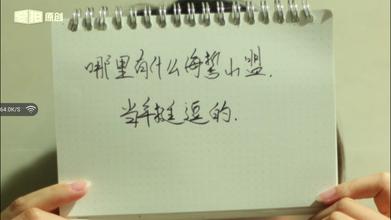 爱拍 原创
哪里有什么海誓山盟.
64.0K/S
当年挺逗的.